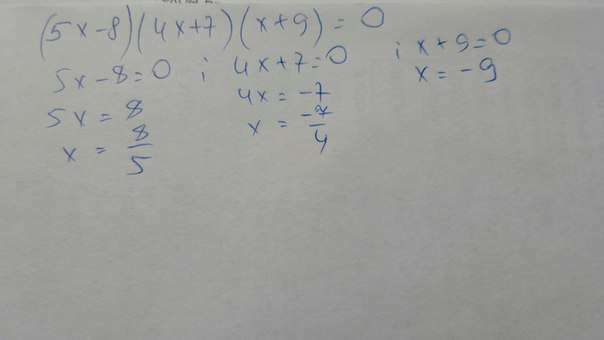 (5x-8)(4x+7)(x+9)=0
5x-8=0 ; 4x+7=0 ; x+9=0
5x=8 4x=-7 x=-9
x=8/5 x=-7/4